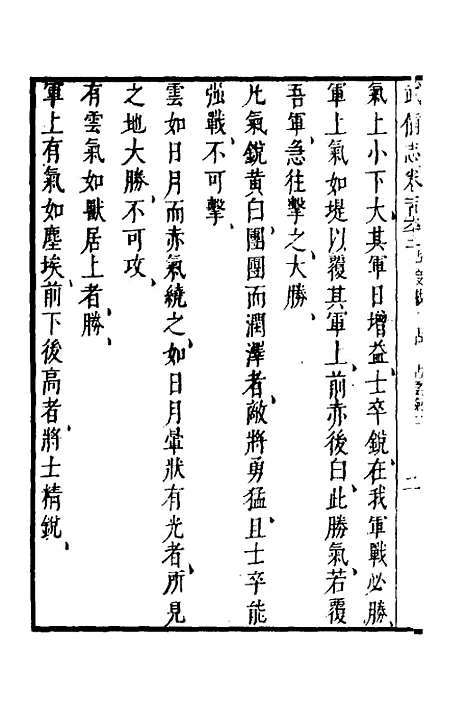 武備志卷
氣上小下大其軍日增益士卒銳在我軍戰必勝、
軍上氣如堤以覆其軍上、前赤後白、此勝氣、若覆
吾軍、急往擊之、大勝、
凡氣銳黃白、團團而潤澤者、敵將勇猛、且士卒能
強戰、不可擊、
雲如日月而赤氣繞之、如日月暈狀有光者、所見
之地大勝、不可攻、
有雲氣如獸居上者、勝、
軍上有氣如塵埃、前下後高者、將士精銳、